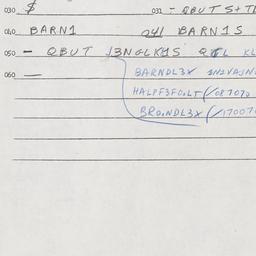 030 $ 032 - QBUT S+TL
040 BARN1 041 BARN1S
050 - QBUT J3NGLK1S
060 —
BARNDL3X 1N2VAJN
HALPF3FO.LT (/087070
BRO.NDL3X (/17007